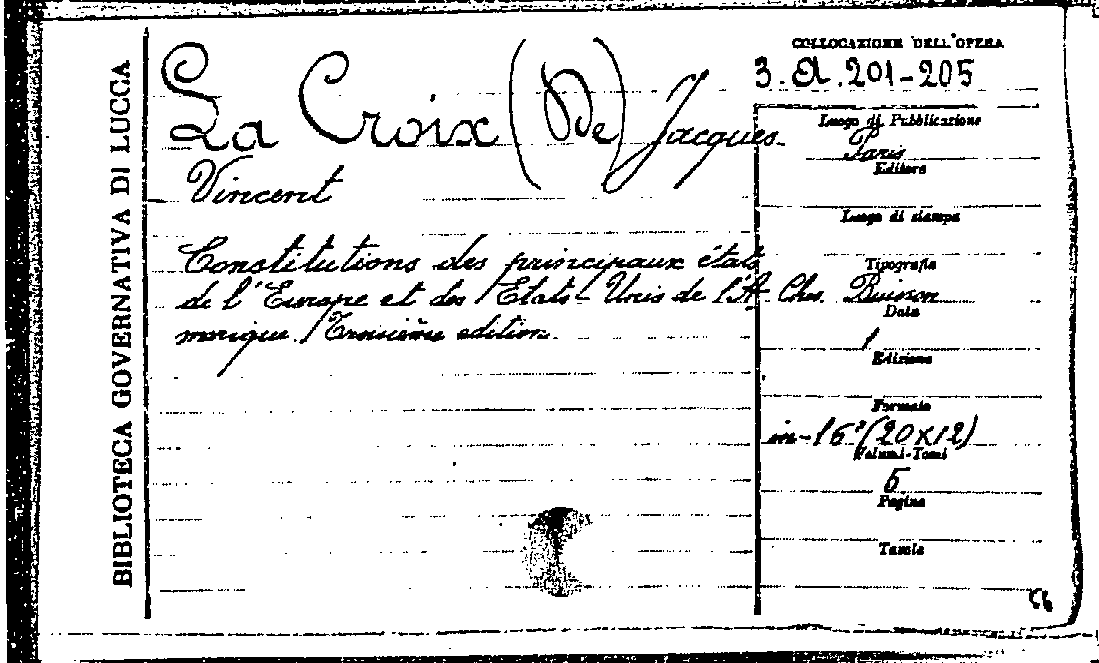 BIBLIOTECA GOVERNATIVA DI LUCCA
La Croix (De) Jacques
Vincent
Constitutions des principaux états
de l'Europe et des Etats-Unis de l'A-
merique. Troisième edition.
COLLOCAZIONE DELL'OPERA
3. A. 201-205
Luogo di Pubblicazione
Paris
Editore
Luogo di stampa
Tipografia
Chez Buisson
Data
1
Edizione
Formato
in-16° (20x12)
Volumi-Tomi
5
Pagine
Tavole